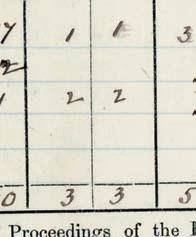 7 1 1 3
2
1 2 2
0 3 3 5
Proceedings of the